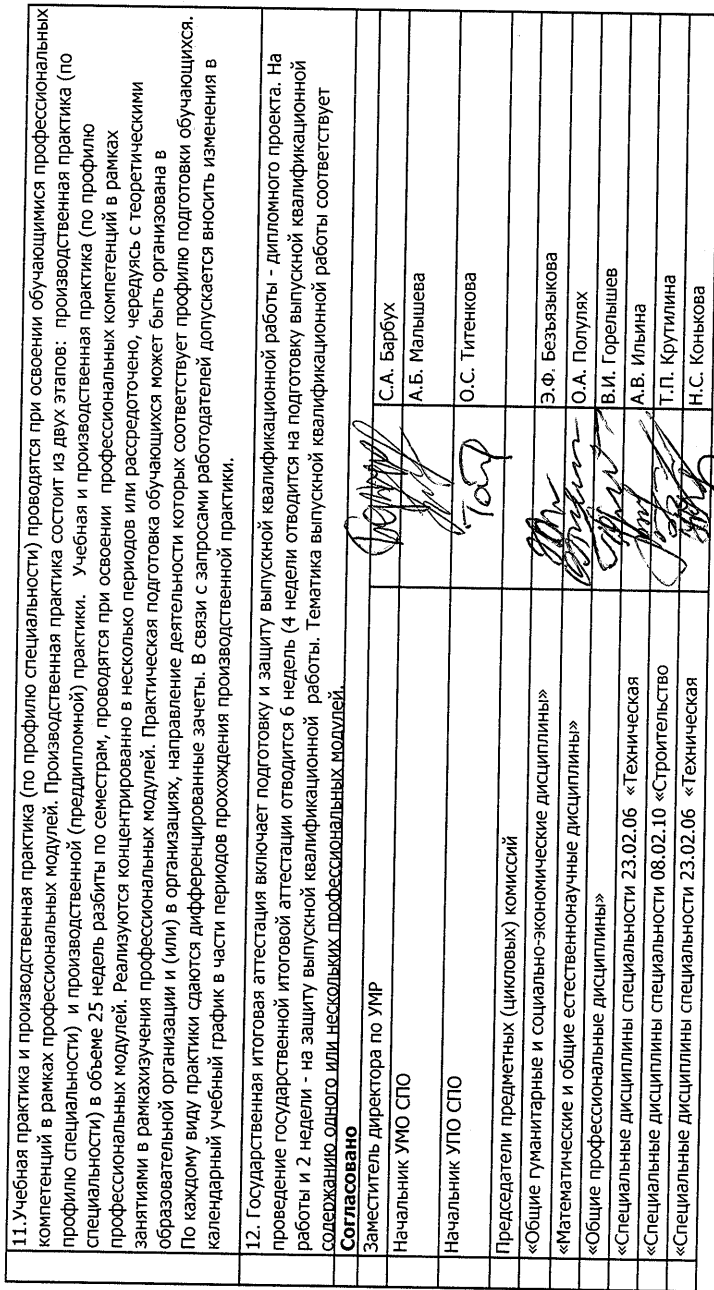 11.Учебная практика и производственная практика (по профилю специальности) проводятся при освоении обучающимися профессиональных
компетенций в рамках профессиональных модулей. Производственная практика состоит из двух этапов: производственная практика (по
профилю специальности) и производственной (преддипломной) практики. Учебная и производственная практика (по профилю
специальности) в объеме 25 недель разбиты по семестрам, проводятся при освоении профессиональных компетенций в рамках
профессиональных модулей. Реализуются концентрированно в несколько периодов или рассредоточено, чередуясь с теоретическими
занятиями в рамкахизучения профессиональных модулей. Практическая подготовка обучающихся может быть организована в
образовательной организации и (или) в организациях, направление деятельности которых соответствует профилю подготовки обучающихся.
По каждому виду практики сдаются дифференцированные зачеты. В связи с запросами работодателей допускается вносить изменения в
календарный учебный график в части периодов прохождения производственной практики.
12. Государственная итоговая аттестация включает подготовку и защиту выпускной квалификационной работы - дипломного проекта. На
проведение государственной итоговой аттестации отводится 6 недель (4 недели отводится на подготовку выпускной квалификационной
работы и 2 недели - на защиту выпускной квалификационной работы. Тематика выпускной квалификационной работы соответствует
содержанию одного или нескольких профессиональных модулей.
Согласовано
Заместитель директора по УМР С.А. Барбух
Начальник УМО СПО А.Б. Малышева
Начальник УПО СПО О.С. Титенкова
Председатели предметных (цикловых) комиссий
«Общие гуманитарные и социально-экономические дисциплины» Э.Ф. Безъязыкова
«Математические и общие естественнонаучные дисциплины» О.А. Полулях
«Общие профессиональные дисциплины» В.И. Горелышев
«Специальные дисциплины специальности 23.02.06 «Техническая А.В. Ильина
«Специальные дисциплины специальности 08.02.10 «Строительство Т.П. Крутилина
«Специальные дисциплины специальности 23.02.06 «Техническая Н.С. Конькова